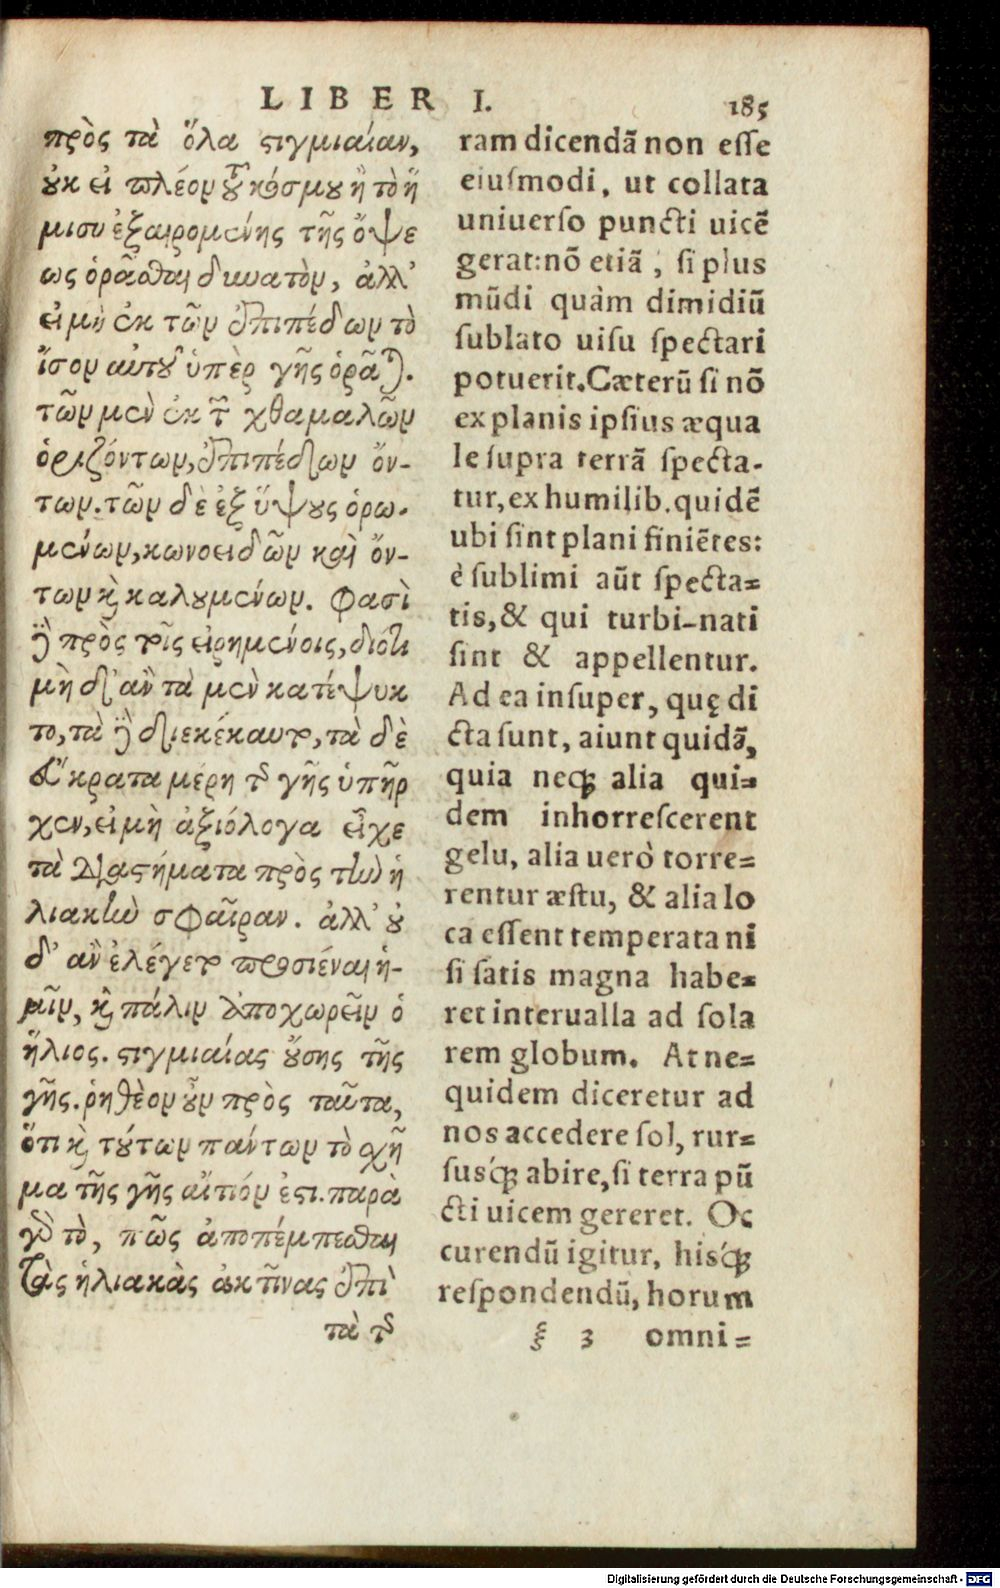 LIBER I. 185
πρὸς τὰ ὅλα ϛιγμιαίαν,
ȣκ εἰ πλέον τȣ͂ κόσμȣ ἢ τὸ ἥ
μισυ ἐξαιρομένης τῆς ὄψε
ως ὁρᾶσθαι δυνατὸν, ἀλλ'
εἰ μὴ ἐκ τῶν ἐπιπέδων τὸ
ἴσον αὐτȣ͂ ὑπὲρ γῆς ὁρᾶται.
τῶν μὲν ἐκ τῶν χθαμαλῶν
ὁριζόντων, ἐπιπέδων ὄν-
των. τῶν δὲ ἐξ ὕψȣς ὁρω-
μένων, κωνοειδῶν καὶ ὄν-
των καὶ καλȣμένων. φασὶ
δὲ πρὸς τοῖς εἰρημένοις, διότι
μὴ δ' ἂν τὰ μὲν κατέψυκ
το, τὰ δὲ διεκέκαυτο, τὰ δὲ
εὔκρατα μέρη τῆς γῆς ὑπῆρ
χεν, εἰ μὴ ἀξιόλογα εἶχε
τὰ διαϛήματα πρὸς τὴν ἡ
λιακὴν σφαῖραν. ἀλλ' ȣ
δ' ἂν ἐλέγετο προσιέναι ἡ-
μῖν, καὶ πάλιν ἀποχωρεῖν ὁ
ἥλιος. ϛιγμιαίας ȣ῎σης τῆς
γῆς. ῥηθέον ȣ῏ν πρὸς ταῦτα,
ὅτι καὶ τȣ́των πάντων τὸ χῆ
μα τῆς γῆς αἴτιόν ἐϛι. παρὰ
γὰρ τὸ, πῶς ἀποπέμπεσθαι
τὰς ἡλιακὰς ἀκτῖνας ἐπὶ
τὰ τῆς
ram dicendā non esse
eiusmodi, ut collata
uniuerso puncti uicē
gerat: nō etiā, si plus
mūdi quàm dimidiū
sublato uisu spectari
potuerit. Cæterū si nō
ex planis ipsius æqua
le supra terrā specta-
tur, ex humilib. quidē
ubi sint plani finiētes:
è sublimi aūt specta=
tis, & qui turbi-nati
sint & appellentur.
Ad ea insuper, quę di
cta sunt, aiunt quidā,
quia neq; alia qui=
dem inhorrescerent
gelu, alia uerò torre=
rentur æstu, & alia lo
ca essent temperata ni
si satis magna habe=
ret interualla ad sola
rem globum. At ne=
quidem diceretur ad
nos accedere sol, rur=
susq́; abire, si terra pū
cti uicem gereret. Oc
curendū igitur, hisq́;
respondendū, horum
ξ 3 omni=
Digitalisierung gefördert durch die Deutsche Forschungsgemeinschaft - DFG